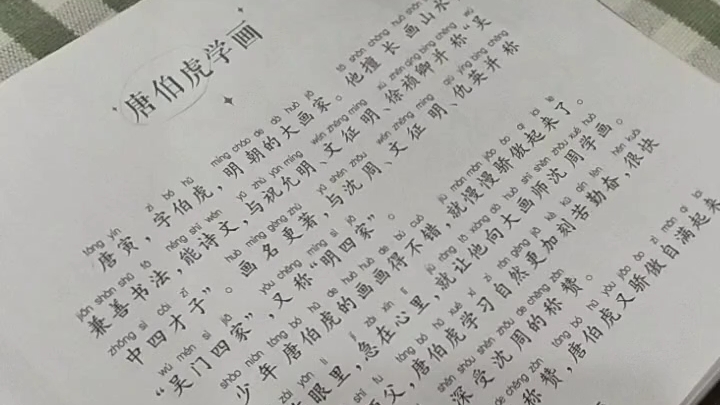 唐伯虎学画
táng yín zì bó hǔ míng cháo de dà huà jiā tā shàn cháng huà shān
唐寅，字伯虎，明朝的大画家。他擅长画山水
jiān shàn shū fǎ néng shī wén yǔ zhù yǔn míng wén zhēng míng xú zhēn qīng bìng chēng wú
兼善书法，能诗文，与祝允明、文征明、徐祯卿并称“吴
zhōng sì cái zǐ huà míng gèng zhù yǔ shěn zhōu wén zhēng míng qiú yīng bìng chēng
中四才子”。画名更著，与沈周、文征明、仇英并称
wú mén sì jiā yòu chēng míng sì jiā
“吴门四家”，又称“明四家”。
shào nián táng bó hǔ de huà huà de bú cuò jiù màn màn jiāo ào qǐ lái le
少年唐伯虎的画画得不错，就慢慢骄傲起来了。
zài yǎn lǐ jí zài xīn lǐ jiù ràng tā xiàng dà huà shī shěn zhōu xué huà
在眼里，急在心里，就让他向大画师沈周学画。
shī fu táng bó hǔ xué xí zì rán gèng jiā kè kǔ qín fèn hěn kuài
师父，唐伯虎学习自然更加刻苦勤奋，很快
shēn shòu shěn zhōu de chēng zàn
深受沈周的称赞。
de chēng zàn táng bó hǔ yòu jiāo ào zì mǎn qǐ lái
称赞，唐伯虎又骄傲自满起来